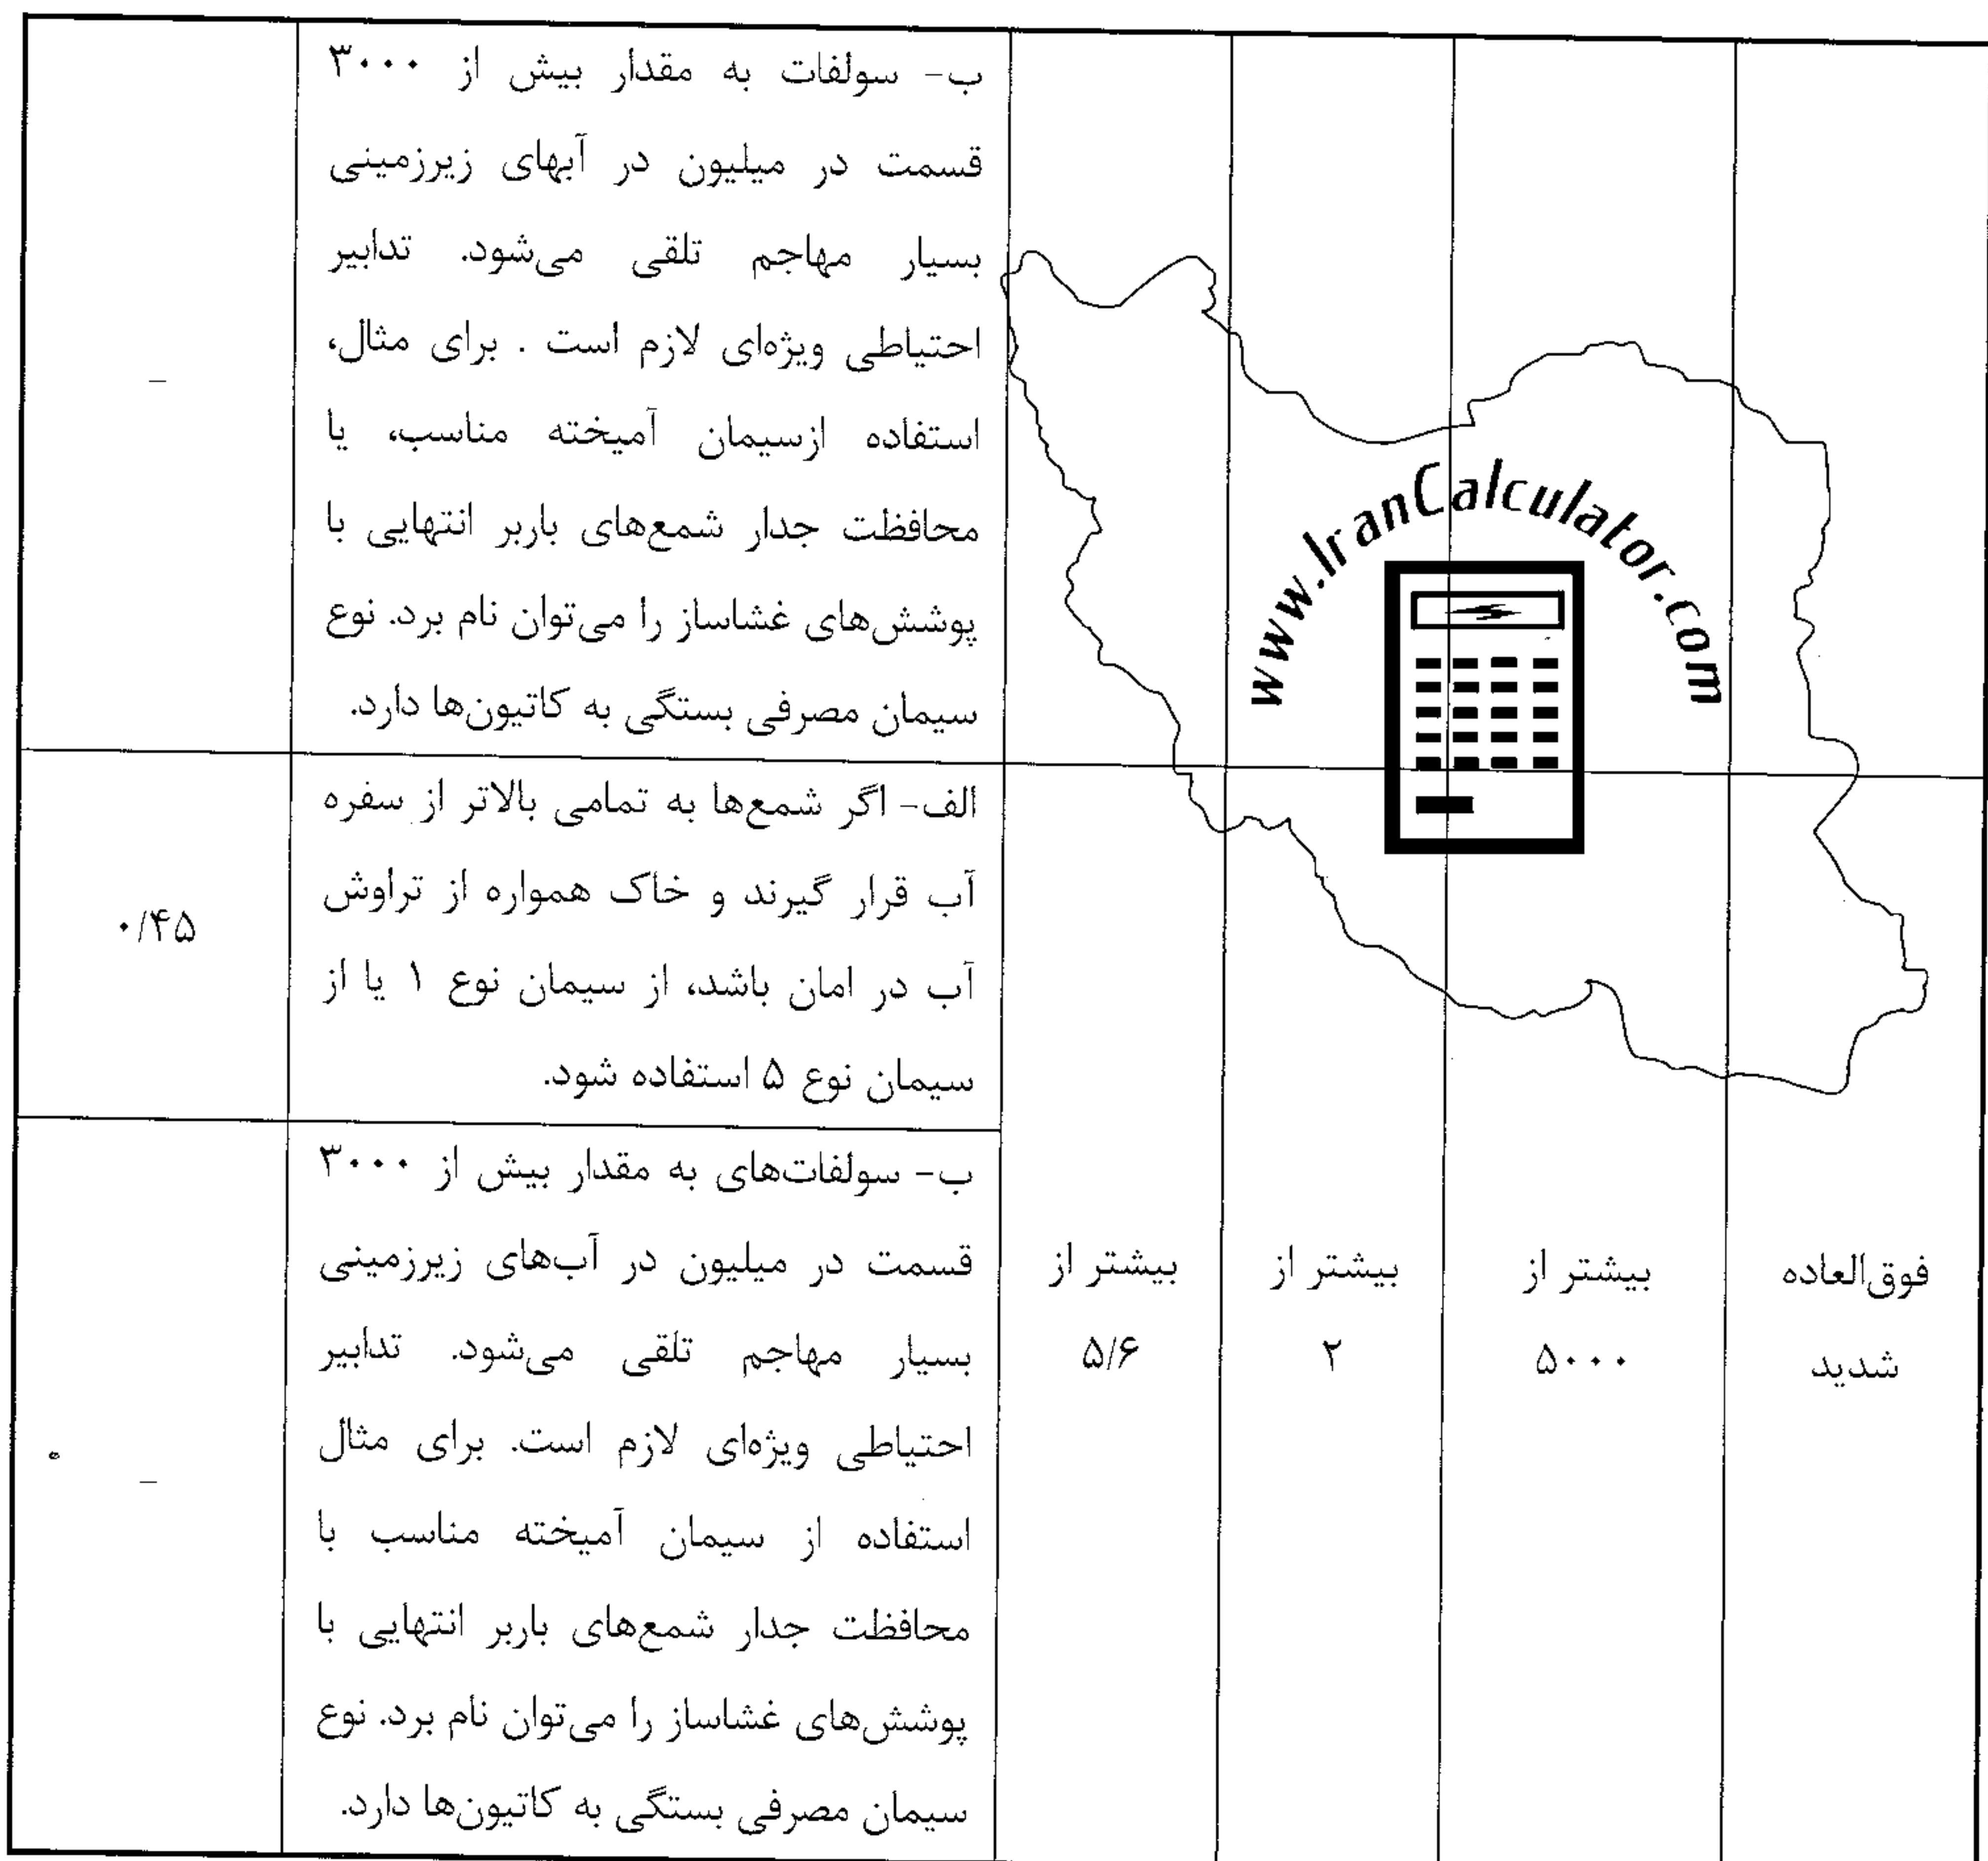 ب- سولفات به مقدار بیش از ۳۰۰۰
قسمت در میلیون در آبهای زیرزمینی
بسیار مهاجم تلقی می‌شود. تدابیر
احتیاطی ویژه‌ای لازم است . برای مثال،
استفاده ازسیمان آمیخته مناسب، یا
محافظت جدار شمع‌های باربر انتهایی با
پوشش‌های غشاساز را می‌توان نام برد. نوع
سیمان مصرفی بستگی به کاتیون‌ها دارد.
–
www.IranCalculator.com
فوق‌العاده
شدید
بیشتر از
۵۰۰۰
بیشتر از
۲
بیشتر از
۵/۶
الف- اگر شمع‌ها به تمامی بالاتر از سفره
آب قرار گیرند و خاک همواره از تراوش
آب در امان باشد، از سیمان نوع ۱ یا از
سیمان نوع ۵ استفاده شود.
۰/۴۵
ب- سولفات‌های به مقدار بیش از ۳۰۰۰
قسمت در میلیون در آب‌های زیرزمینی
بسیار مهاجم تلقی می‌شود. تدابیر
احتیاطی ویژه‌ای لازم است. برای مثال
استفاده از سیمان آمیخته مناسب با
محافظت جدار شمع‌های باربر انتهایی با
پوشش‌های غشاساز را می‌توان نام برد. نوع
سیمان مصرفی بستگی به کاتیون‌ها دارد.
–